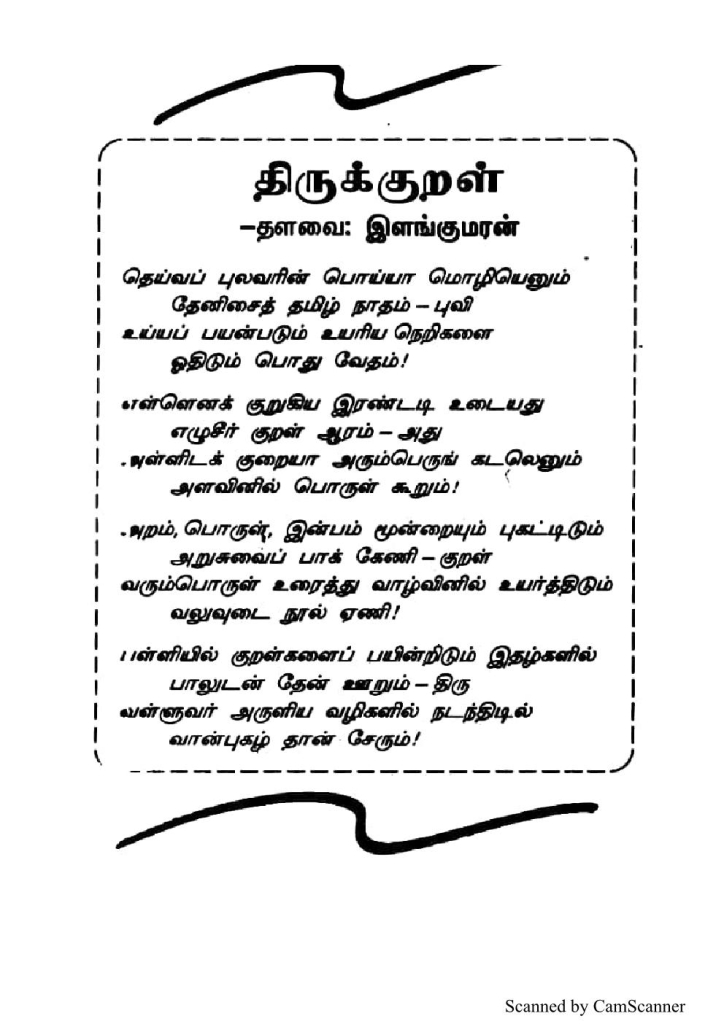 திருக்குறள்
–தளவை: இளங்குமரன்
தெய்வப் புலவரின் பொய்யா மொழியெனும்
தேனிசைத் தமிழ் நாதம் – புவி
உய்யப் பயன்படும் உயரிய நெறிகளை
ஓதிடும் பொது வேதம்!
எள்ளெனக் குறுகிய இரண்டடி உடையது
எழுசீர் குறள் ஆரம் – அது
அள்ளிடக் குறையா அரும்பெருங் கடலெனும்
அளவினில் பொருள் கூறும்!
அறம், பொருள், இன்பம் மூன்றையும் புகட்டிடும்
அறுசுவைப் பாக் கேணி – குறள்
வரும்பொருள் உரைத்து வாழ்வினில் உயர்த்திடும்
வலுவுடை நூல் ஏணி!
பள்ளியில் குறள்களைப் பயின்றிடும் இதழ்களில்
பாலுடன் தேன் ஊறும் – திரு
வள்ளுவர் அருளிய வழிகளில் நடந்திடில்
வான்புகழ் தான் சேரும்!
Scanned by CamScanner